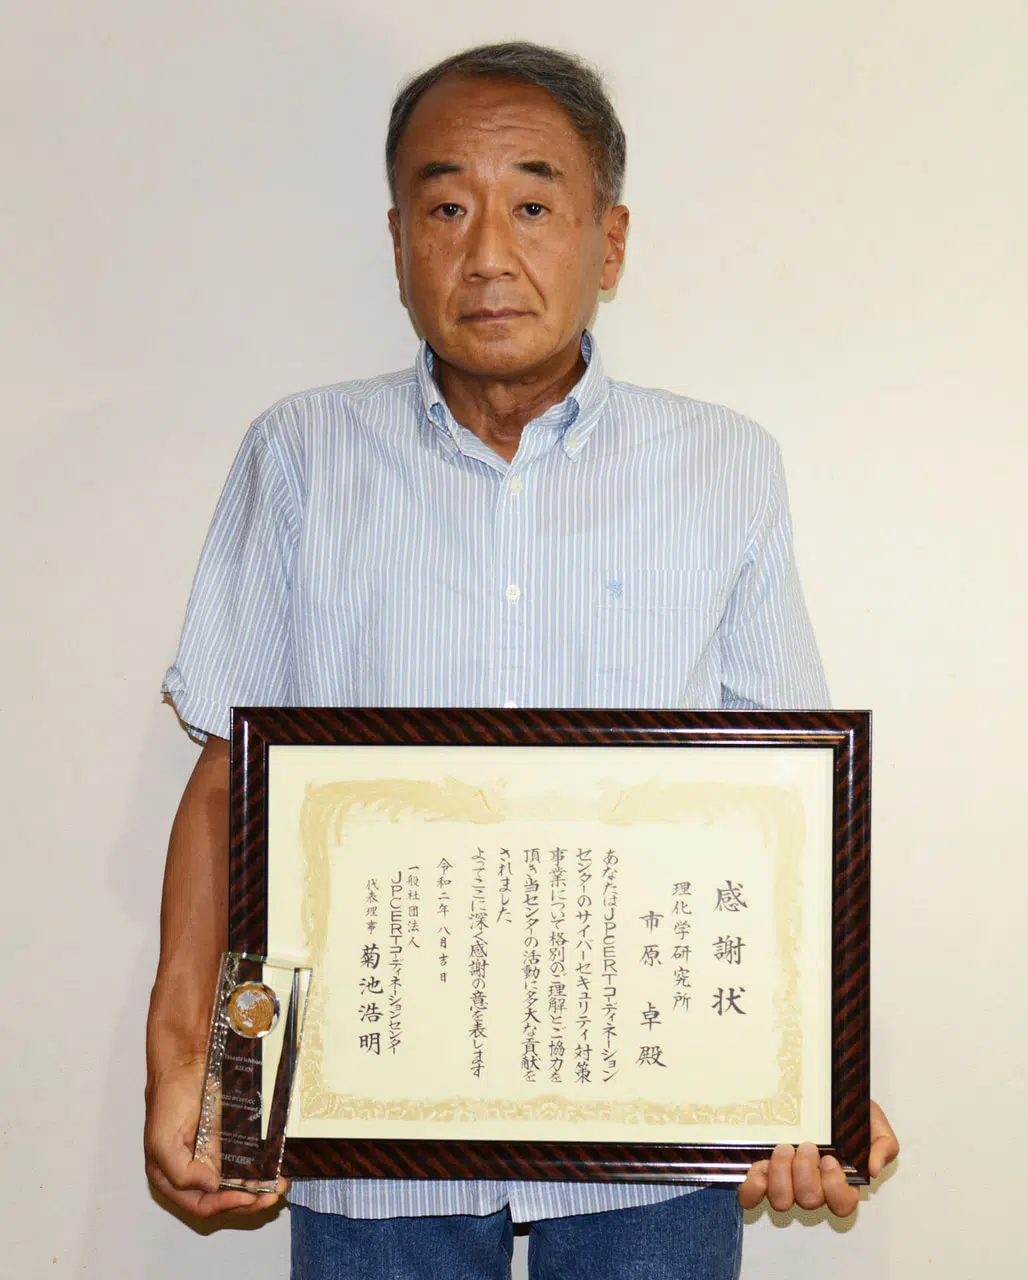 感謝状
理化学研究所
市原 卓 殿
あなたはJPCERTコーディネーション
センターのサイバーセキュリティ対策
事業について格別のご理解とご協力を
頂き当センターの活動に多大な貢献を
されました
よってここに深く感謝の意を表します
令和二年八月吉日
一般社団法人
JPCERTコーディネーションセンター
代表理事 菊池浩明
Takashi Ichihara
RIKEN